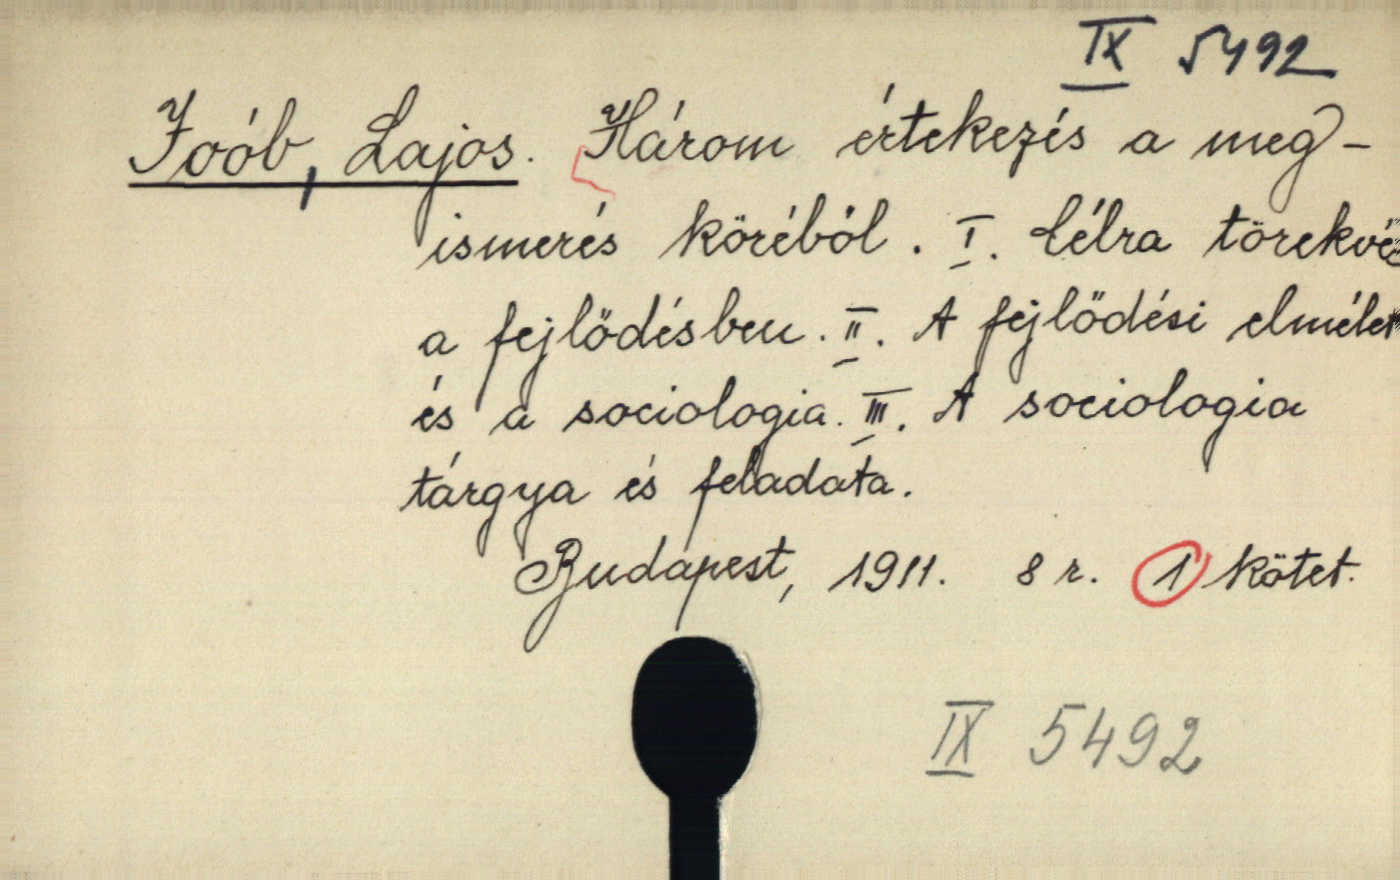 IX 5492
Joób, Lajos. Három értekezés a meg-
ismerés köréből. I. Célra törekvés
a fejlődésben. II. A fejlődési elmélet
és a sociologia. III. A sociologia
tárgya és feladata.
Budapest, 1911. 8 r. 1 kötet.
IX 5492